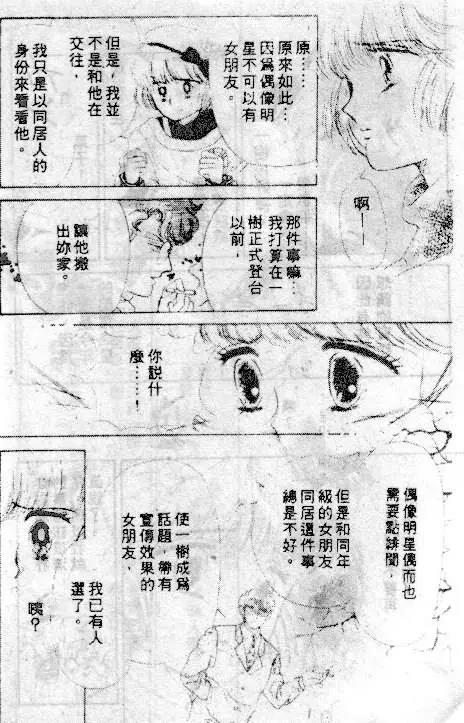 啊——
原……
原來如此…
因為偶像明
星不可以有
女朋友。
但是，我並
不是和他在
交往，
我只是以同居人的
身份來看看他。
那件事嘛…
我打算在一
樹正式登台
以前，
讓他搬
出妳家。
你說什
麼……！
偶像明星偶而也
需要點緋聞，
但是和同年
級的女朋友
同居這件事
總是不好。
使一樹成為
話題，帶有
宣傳效果的
女朋友，
我已有人
選了。
咦？